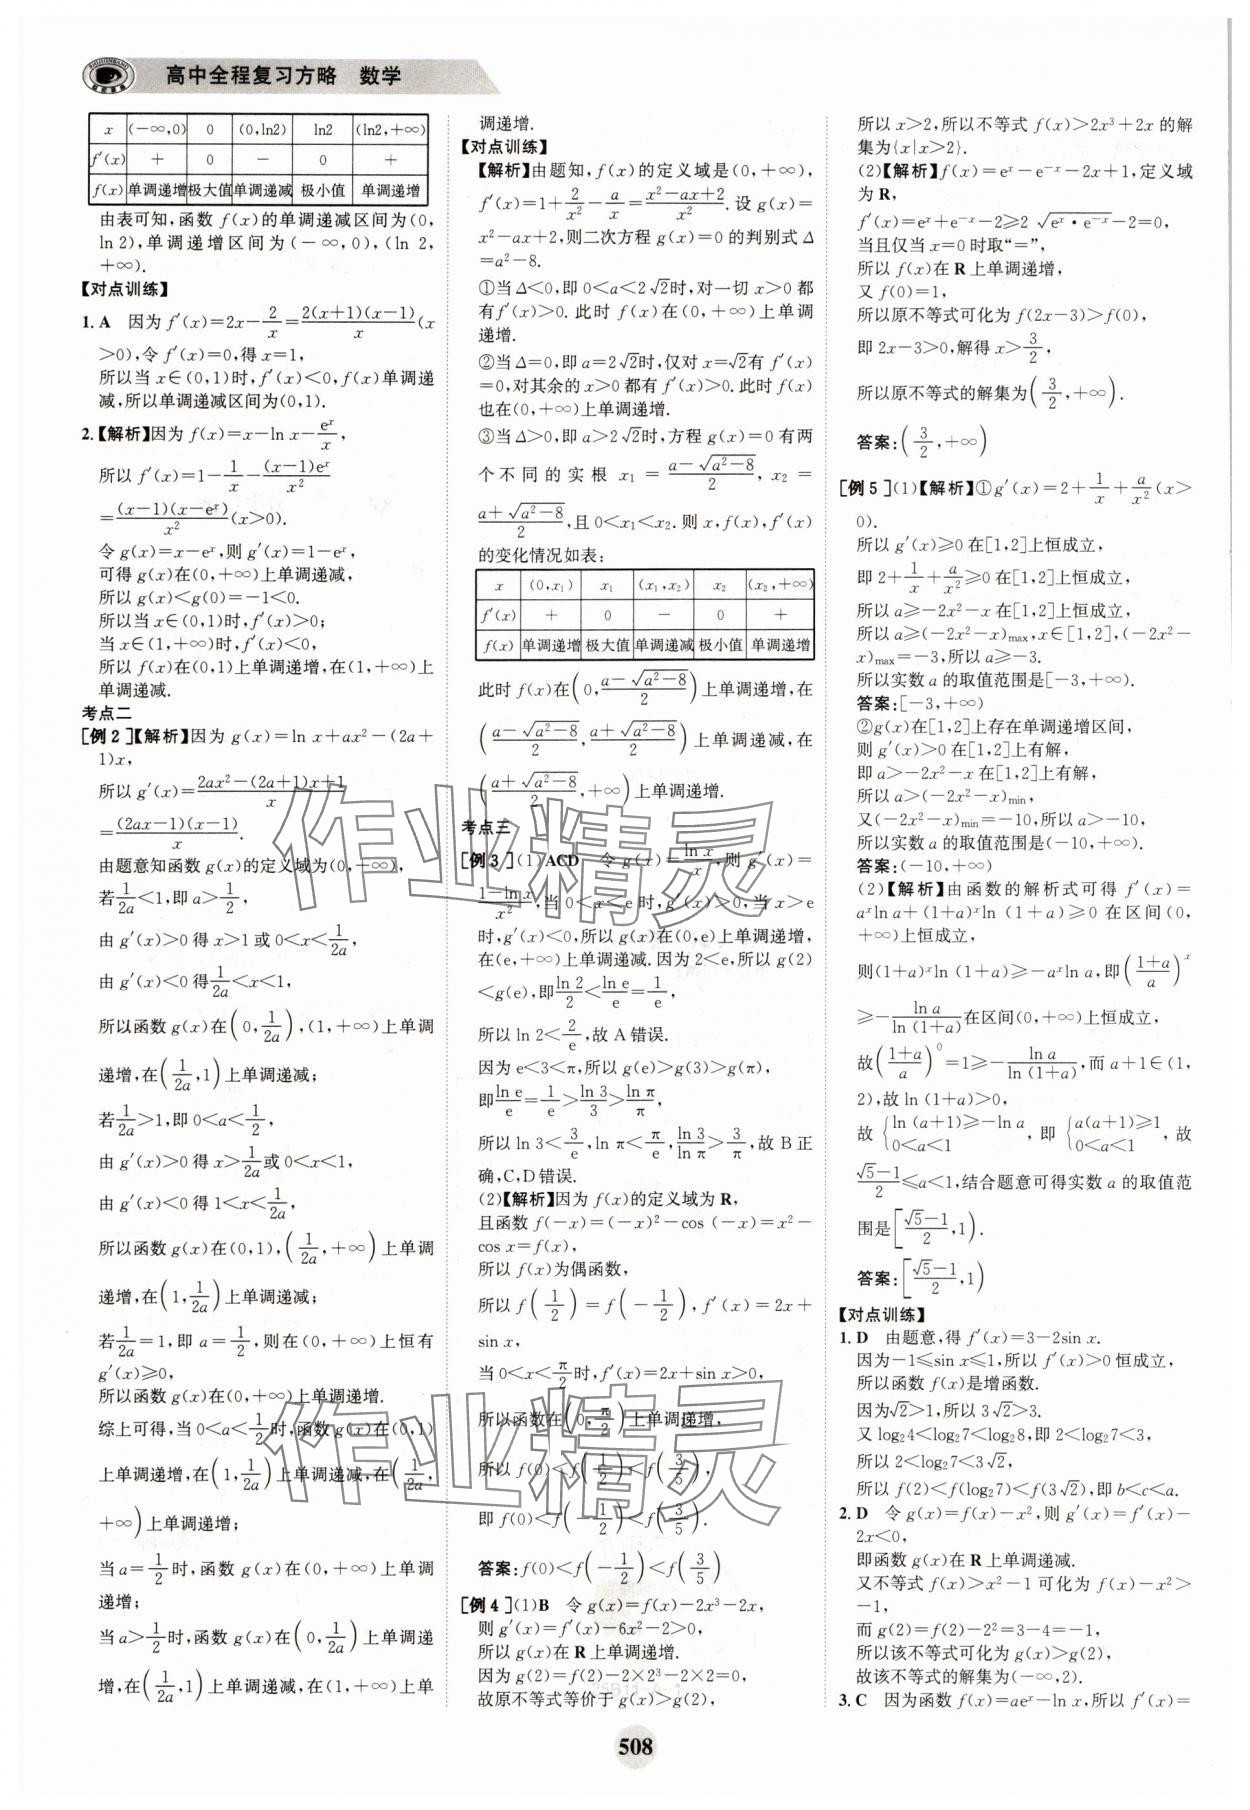 高中全程复习方略　数学
x (-∞,0) 0 (0,ln2) ln2 (ln2,+∞)
f′(x) + 0 - 0 +
f(x) 单调递增 极大值 单调递减 极小值 单调递增
由表可知,函数 f(x)的单调递减区间为(0,
ln 2),单调递增区间为(-∞,0),(ln 2,
+∞).
【对点训练】
1. A　因为 f′(x)=2x-2/x=2(x+1)(x-1)/x(x
>0),令 f′(x)=0,得 x=1,
所以当 x∈(0,1)时,f′(x)<0,f(x)单调递
减,所以单调递减区间为(0,1).
2.【解析】因为 f(x)=x-ln x-e^x/x,
所以 f′(x)=1-1/x-(x-1)e^x/x²
=(x-1)(x-e^x)/x²(x>0).
令 g(x)=x-e^x,则 g′(x)=1-e^x,
可得 g(x)在(0,+∞)上单调递减,
所以 g(x)<g(0)=-1<0.
所以当 x∈(0,1)时,f′(x)>0;
当 x∈(1,+∞)时,f′(x)<0,
所以 f(x)在(0,1)上单调递增,在(1,+∞)上
单调递减.
考点二
[例 2]【解析】因为 g(x)=ln x+ax²-(2a+
1)x,
所以 g′(x)=(2ax²-(2a+1)x+1)/x
=(2ax-1)(x-1)/x.
由题意知函数 g(x)的定义域为(0,+∞),
若1/2a<1,即 a>1/2,
由 g′(x)>0 得 x>1 或 0<x<1/2a,
由 g′(x)<0 得1/2a<x<1,
所以函数 g(x)在(0,1/2a),(1,+∞)上单调
递增,在(1/2a,1)上单调递减;
若1/2a>1,即 0<a<1/2,
由 g′(x)>0 得 x>1/2a或 0<x<1,
由 g′(x)<0 得 1<x<1/2a,
所以函数 g(x)在(0,1),(1/2a,+∞)上单调
递增,在(1,1/2a)上单调递减;
若1/2a=1,即 a=1/2,则在(0,+∞)上恒有
g′(x)≥0,
所以函数 g(x)在(0,+∞)上单调递增.
综上可得,当 0<a<1/2时,函数 g(x)在(0,1)
上单调递增,在(1,1/2a)上单调递减,在(1/2a,
+∞)上单调递增;
当 a=1/2时,函数 g(x)在(0,+∞)上单调
递增;
当 a>1/2时,函数 g(x)在(0,1/2a)上单调递
增,在(1/2a,1)上单调递减,在(1,+∞)上单
调递增.
【对点训练】
【解析】由题知,f(x)的定义域是(0,+∞),
f′(x)=1+2/x²-a/x=(x²-ax+2)/x².设 g(x)=
x²-ax+2,则二次方程 g(x)=0 的判别式 Δ
=a²-8.
①当 Δ<0,即 0<a<2√2时,对一切 x>0 都
有 f′(x)>0. 此时 f(x)在(0,+∞)上单调
递增.
②当 Δ=0,即 a=2√2时,仅对 x=√2有 f′(x)
=0,对其余的 x>0 都有 f′(x)>0.此时 f(x)
也在(0,+∞)上单调递增.
③当 Δ>0,即 a>2√2时,方程 g(x)=0 有两
个不同的实根 x₁=(a-√(a²-8))/2, x₂=
(a+√(a²-8))/2,且 0<x₁<x₂.则 x,f(x),f′(x)
的变化情况如表:
x (0,x₁) x₁ (x₁,x₂) x₂ (x₂,+∞)
f′(x) + 0 - 0 +
f(x) 单调递增 极大值 单调递减 极小值 单调递增
此时 f(x)在(0,(a-√(a²-8))/2)上单调递增,在
((a-√(a²-8))/2,(a+√(a²-8))/2)上单调递减,在
((a+√(a²-8))/2,+∞)上单调递增.
考点三
[例 3](1)ACD　令 g(x)=ln x/x,则 g′(x)=
(1-ln x)/x²,当 0<x<e时,g′(x)>0,当 x>e
时,g′(x)<0,所以 g(x)在(0,e)上单调递增,
在(e,+∞)上单调递减.因为 2<e,所以 g(2)
<g(e),即ln 2/2<ln e/e=1/e,
所以 ln 2<2/e,故 A 错误.
因为 e<3<π,所以 g(e)>g(3)>g(π),
即ln e/e=1/e>ln 3/3>ln π/π,
所以 ln 3<3/e,ln π<π/e,ln 3/ln π>3/π,故 B 正
确,C,D 错误.
(2)【解析】因为 f(x)的定义域为 R,
且函数 f(-x)=(-x)²-cos (-x)=x²-
cos x=f(x),
所以 f(x)为偶函数,
所以 f(1/2)=f(-1/2),f′(x)=2x+
sin x,
当 0<x<π/2时,f′(x)=2x+sin x>0,
所以函数在(0,π/2)上单调递增,
所以 f(0)<f(1/2)<f(3/5),
即 f(0)<f(-1/2)<f(3/5).
答案:f(0)<f(-1/2)<f(3/5)
[例 4](1)B　令 g(x)=f(x)-2x³-2x,
则 g′(x)=f′(x)-6x²-2>0,
所以 g(x)在 R 上单调递增.
因为 g(2)=f(2)-2×2³-2×2=0,
故原不等式等价于 g(x)>g(2),
所以 x>2,所以不等式 f(x)>2x³+2x 的解
集为{x|x>2}.
(2)【解析】f(x)=e^x-e^-x-2x+1,定义域
为 R,
f′(x)=e^x+e^-x-2≥2√(e^x·e^-x)-2=0,
当且仅当 x=0 时取“=”,
所以 f(x)在 R 上单调递增,
又 f(0)=1,
所以原不等式可化为 f(2x-3)>f(0),
即 2x-3>0,解得 x>3/2,
所以原不等式的解集为(3/2,+∞).
答案:(3/2,+∞)
[例 5](1)【解析】①g′(x)=2+1/x+a/x²(x>
0).
所以 g′(x)≥0 在[1,2]上恒成立,
即 2+1/x+a/x²≥0 在[1,2]上恒成立,
所以 a≥-2x²-x 在[1,2]上恒成立,
所以 a≥(-2x²-x)max,x∈[1,2],(-2x²-
x)max=-3,所以 a≥-3.
所以实数 a 的取值范围是[-3,+∞).
答案:[-3,+∞)
②g(x)在[1,2]上存在单调递增区间,
则 g′(x)>0 在[1,2]上有解,
即 a>-2x²-x 在[1,2]上有解,
所以 a>(-2x²-x)min,
又(-2x²-x)min=-10,所以 a>-10.
所以实数 a 的取值范围是(-10,+∞).
答案:(-10,+∞)
(2)【解析】由函数的解析式可得 f′(x)=
a^x ln a+(1+a)^x ln (1+a)≥0 在区间(0,
+∞)上恒成立,
则(1+a)^x ln (1+a)≥-a^x ln a,即((1+a)/a)^x
≥-ln a/ln (1+a)在区间(0,+∞)上恒成立,
故((1+a)/a)^0=1≥-ln a/ln (1+a),而 a+1∈(1,
2),故 ln (1+a)>0,
故{ln (a+1)≥-ln a 0<a<1,即{a(a+1)≥1 0<a<1,故
(√5-1)/2≤a<1,结合题意可得实数 a 的取值范
围是[(√5-1)/2,1).
答案:[(√5-1)/2,1)
【对点训练】
1. D　由题意,得 f′(x)=3-2sin x.
因为-1≤sin x≤1,所以 f′(x)>0 恒成立,
所以函数 f(x)是增函数.
因为√2>1,所以 3√2>3.
又 log₂4<log₂7<log₂8,即 2<log₂7<3,
所以 2<log₂7<3√2,
所以 f(2)<f(log₂7)<f(3√2),即 b<c<a.
2. D　令 g(x)=f(x)-x²,则 g′(x)=f′(x)-
2x<0,
即函数 g(x)在 R 上单调递减.
又不等式 f(x)>x²-1 可化为 f(x)-x²>
-1,
而 g(2)=f(2)-2²=3-4=-1,
所以该不等式可化为 g(x)>g(2),
故该不等式的解集为(-∞,2).
3. C　因为函数 f(x)=ae^x-ln x,所以 f′(x)=
508
作业精灵
作业精灵